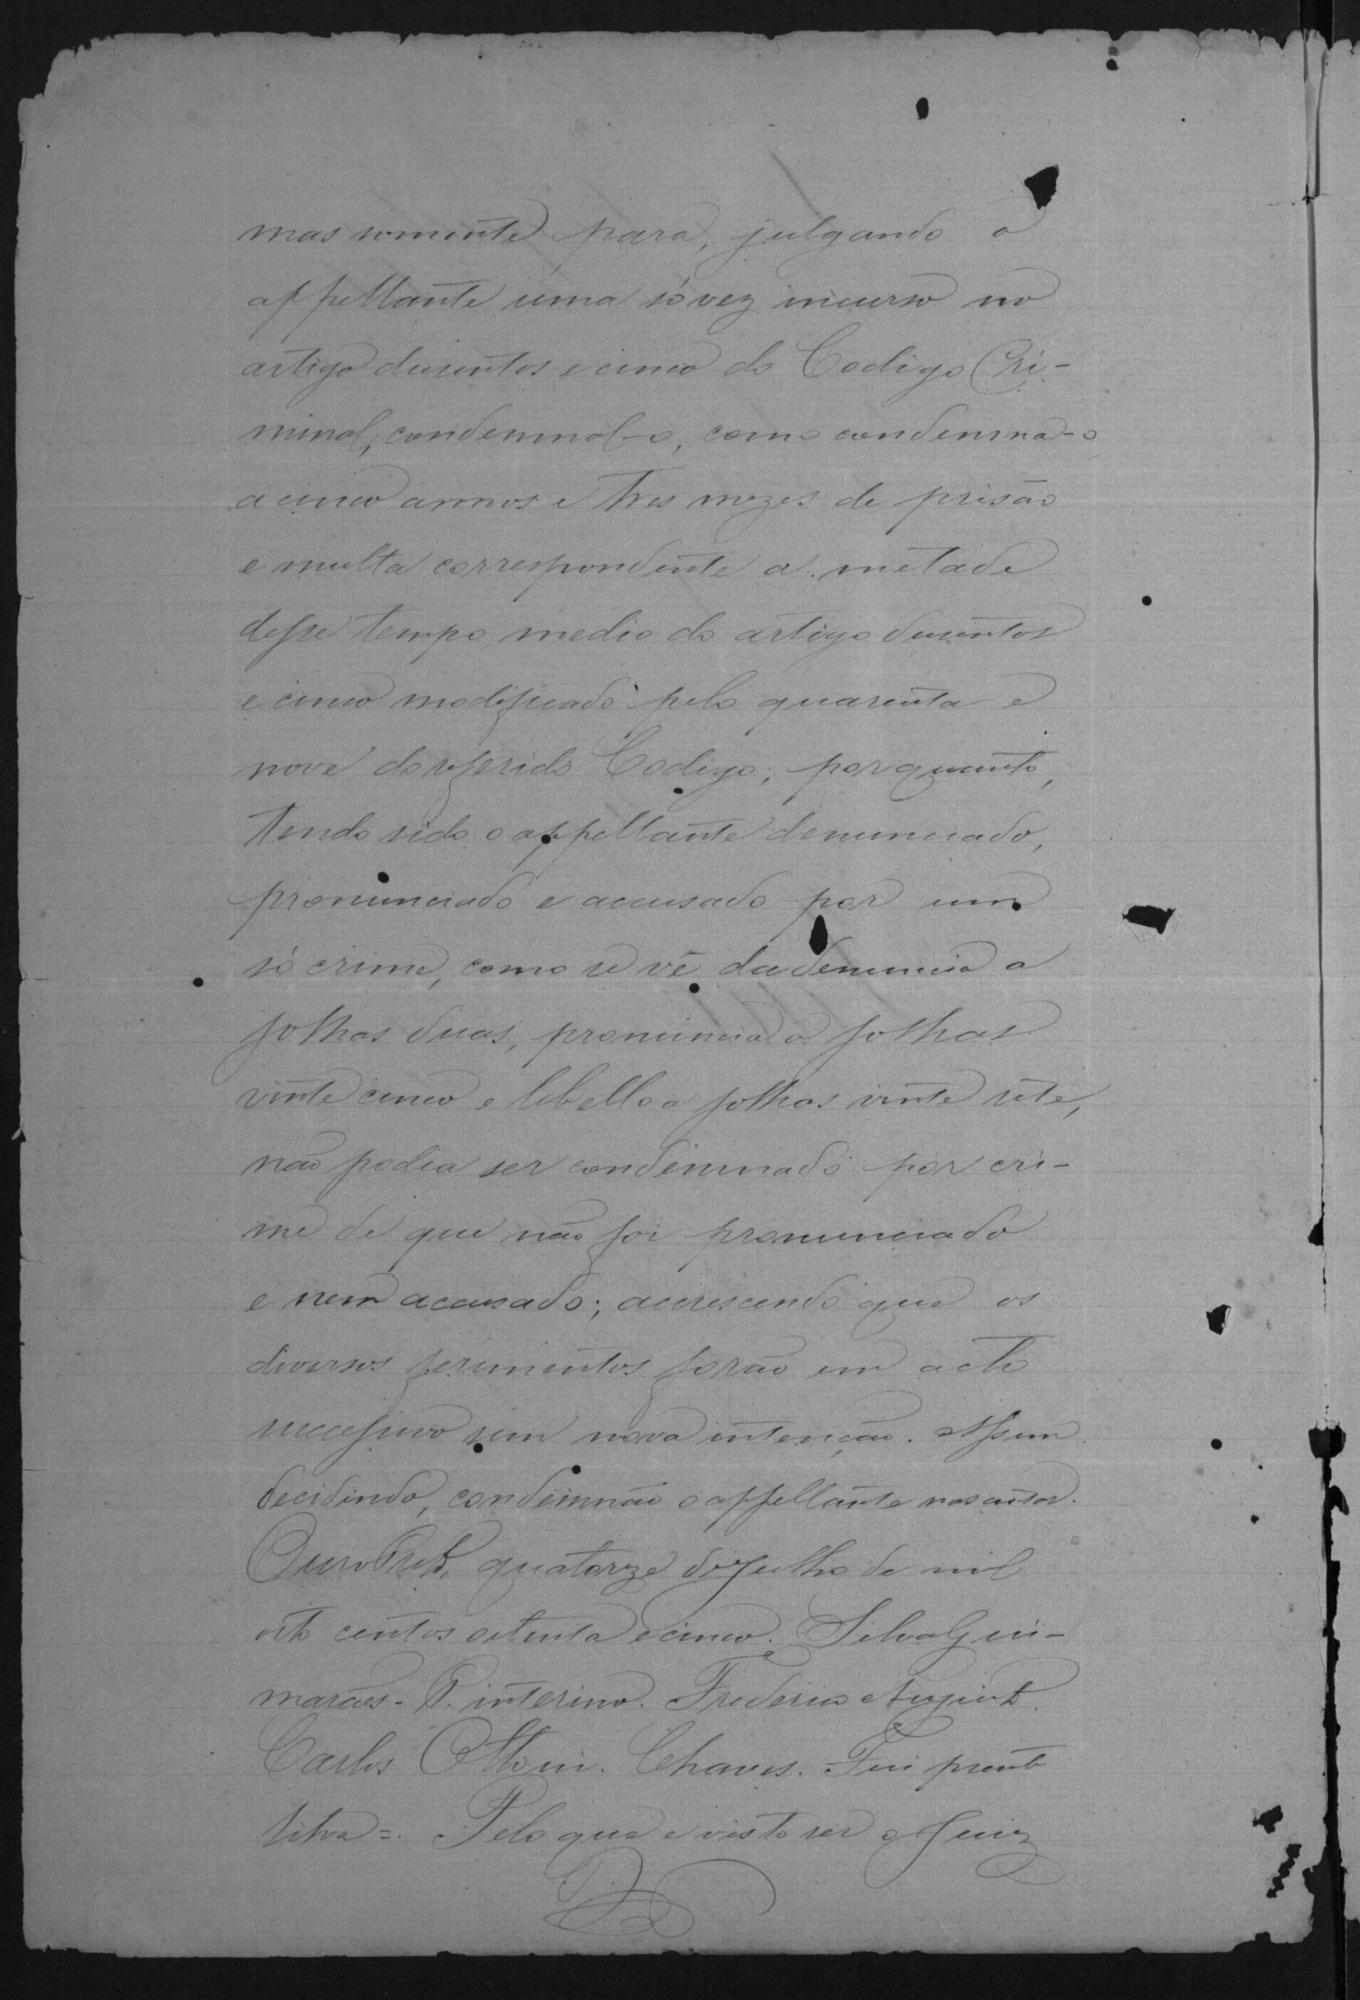 mas somente para, julgando o
appellante uma só vez incurso no
artigo dusentos e cinco do Codigo Cri-
minal, condemnal-o, como condemna-o
a cinco annos e tres mezes de prisão
e multa correspondente a metade
desse tempo, medio do artigo dusentos
e cinco modificado pelo quarenta e
nove do referido Codigo; porquanto,
tendo sido o appellante denunciado,
pronunciado e accusado por um
só crime, como se vê da denuncia a
folhas duas, pronuncia a folhas
vinte cinco e libello a folhas vinte sete,
não podia ser condemnado por cri-
me de que não foi pronunciado
e nem accusado; accrescendo que os
diversos ferimentos forão em acto
successivo sem nova intenção. Assim
decidindo, condemnão o appellante nas custas.
Ouro Preto, quatorze de Julho de mil
oito centos setenta e cinco. Silva Gui-
marães - P. interino. Frederico Augusto.
Carlos Ottoni. Chaves. Fui presente
Silva =. Pelo que e visto ser o Juiz